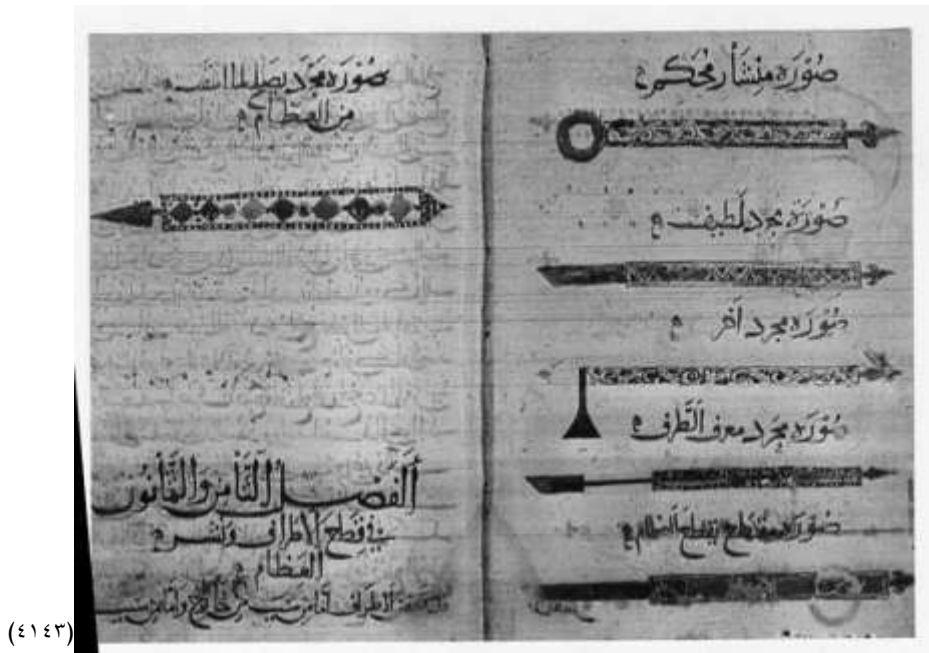 صُورَة مِنْشَار مُحْكَم
صُورَة مجرد لَطيف
صُورَة مجرد آخر
صُورَة مجرد الطَّرف
صُورَة مقطع يقطع العظام
صُورَة مجرد يصلح لما
من العظام
الفَصْل الثَّامن والثمانون
في قطع الاطراف ونشر
العظام
الاطراف اما من سبب من خارج واما من سبب
(٤١٤٣)